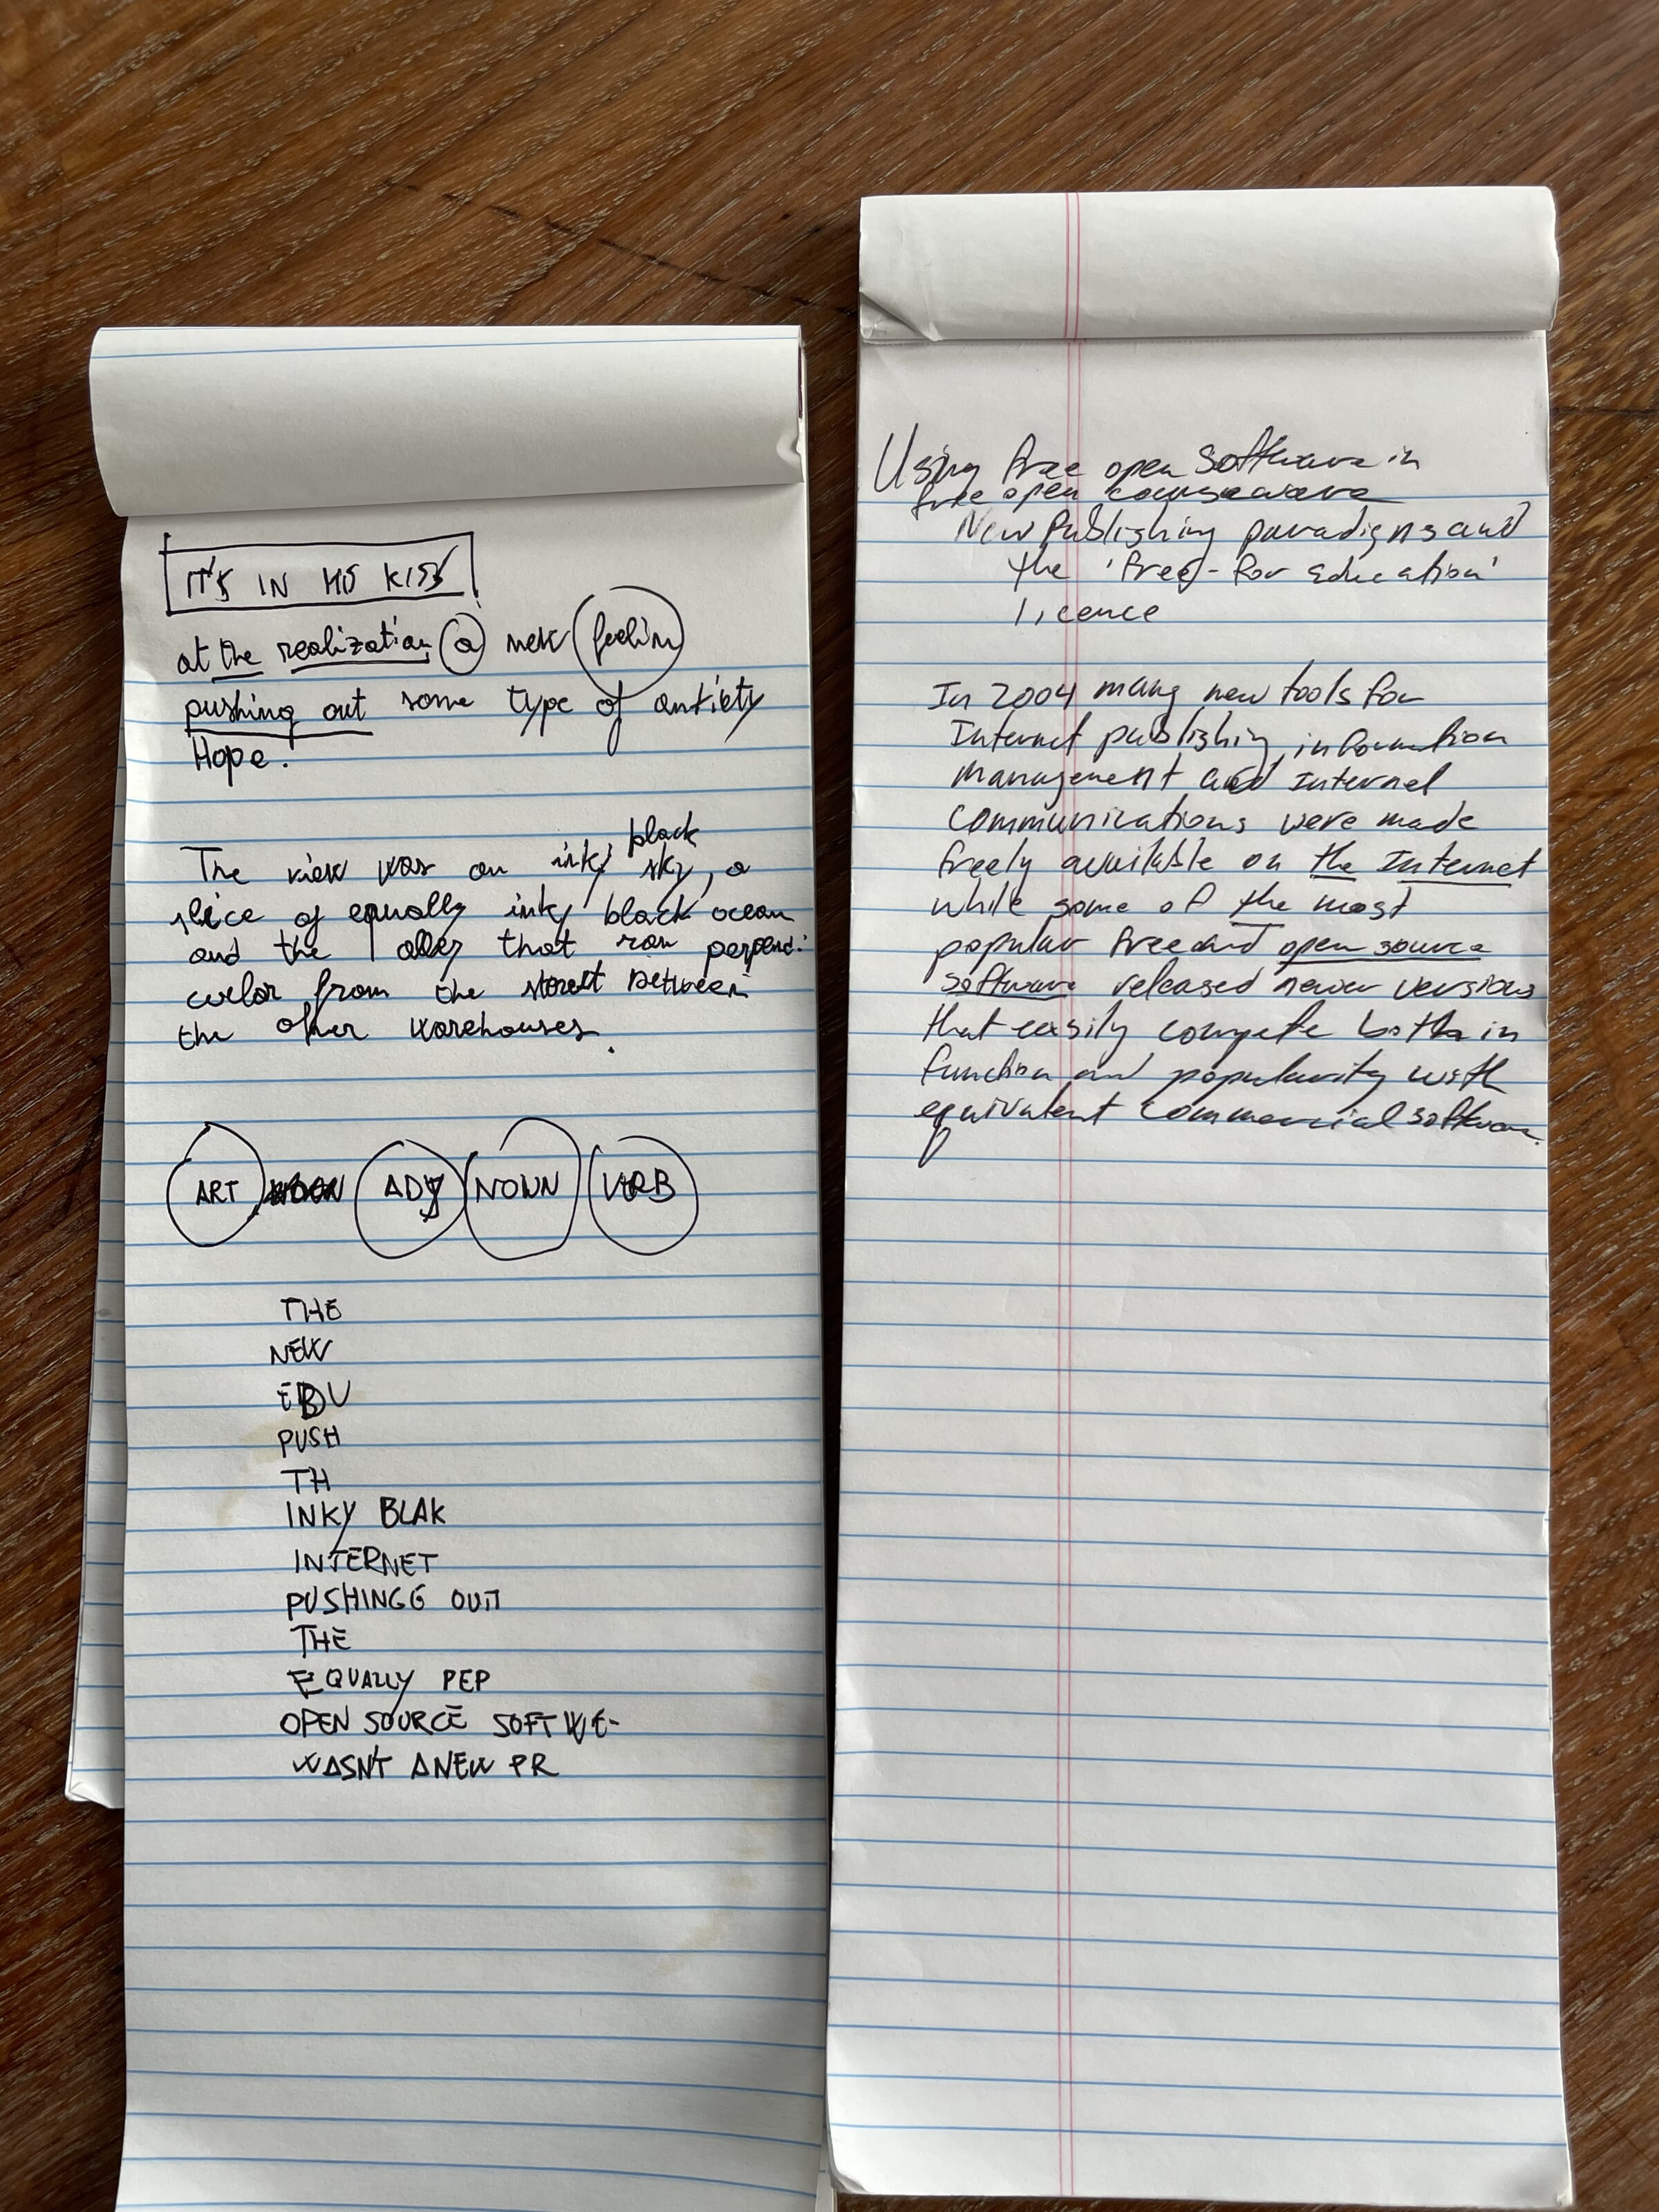 IT'S IN HIS KISS
at the realization a new feelin
pushing out some type of antiety
Hope.
black
The view was an inky sky, a
slice of equally inky black ocean
and the alley that ran perpend:
cular from the street between
the other warehouses.
ART ADJ NOUN VERB
THE
NEW
EDU
PUSH
TH
INKY BLAK
INTERNET
PUSHINGG OUT
THE
EQUALLY PEP
OPEN SOURCE SOFTWE-
WASN'T A NEW PR
Using free open software in
free open courseware
New Publishing paradigns and
the 'free-for education'
licence
In 2004 many new tools for
Internet publishing, information
management and Internel
communications were made
freely available on the Internet
while some of the most
popular free and open source
software released newer versions
that easily compete both in
function and popularity with
equivalent commercial software.